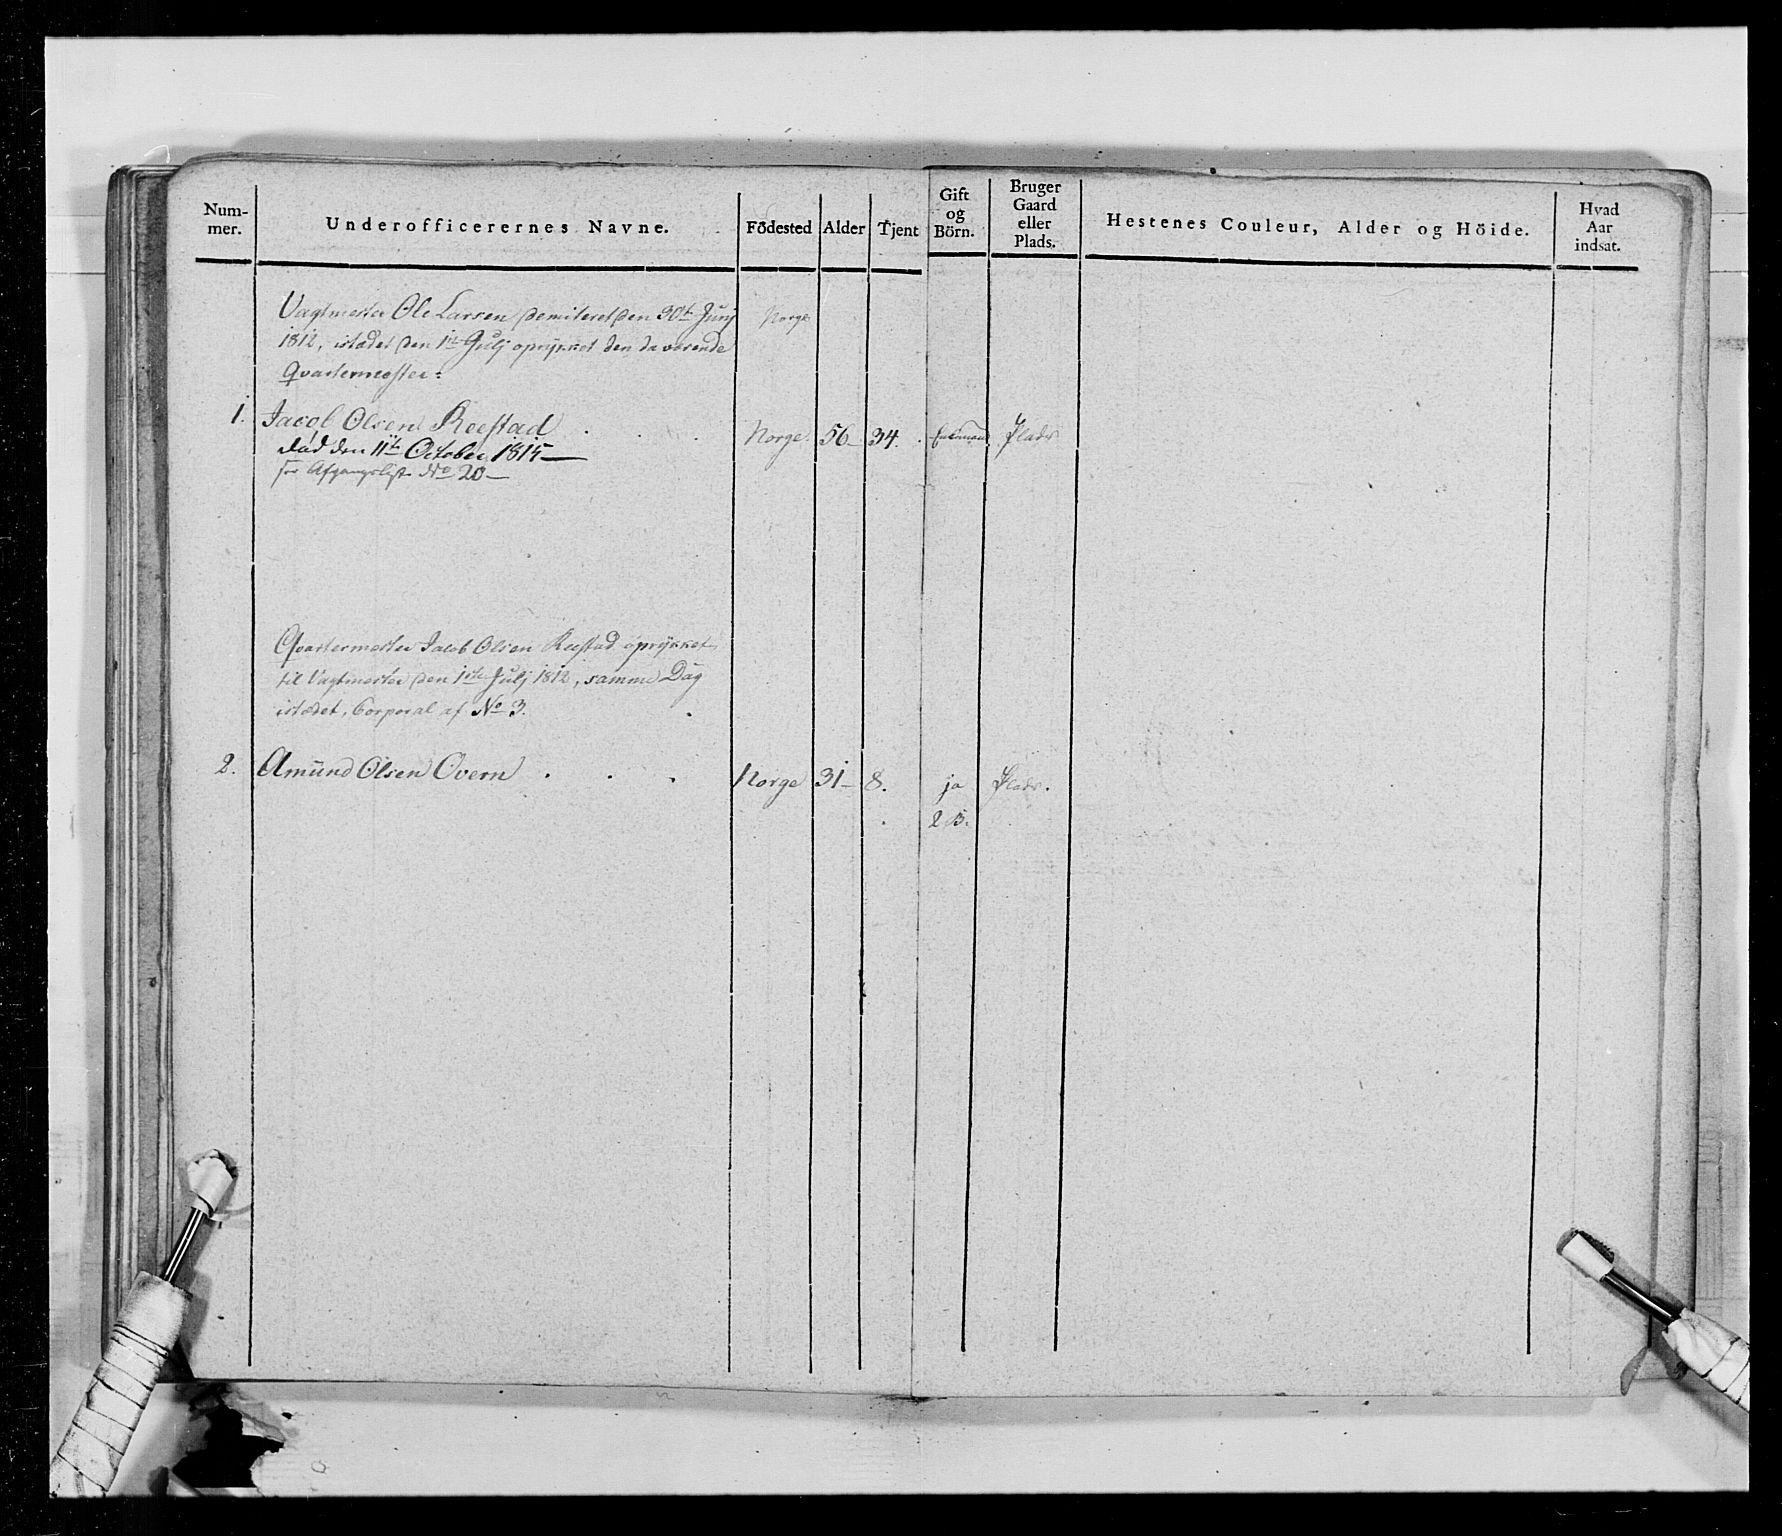 Num-
mer.
Underofficerernes Navne.
Födested
Alder
Tjent
Gift
og
Börn.
Bruger
Gaard
eller
Plads.
Hestenes Couleur, Alder og Höide.
Hvad
Aar
indsat.
Vagtmester Ole Larsen demiteret den 30te Junj Norge
1812, istædet den 1te Julj oprykket den da værende
Qvartermester:
1. Jacob Olsen Reestad . . . Norge. 56 - 34. Enkemand Plads
død den 11te October 1815 —
see Afgangslist No 20 —
Qvartermester Jacob Olsen Reestad oprykket
til Vagtmester den 1ste Julj 1812, samme Dag
istædet, Corporal af No 3.
2. Amund Olsen Overn . . . Norge 31 - 8. ja Plads.
2 B.